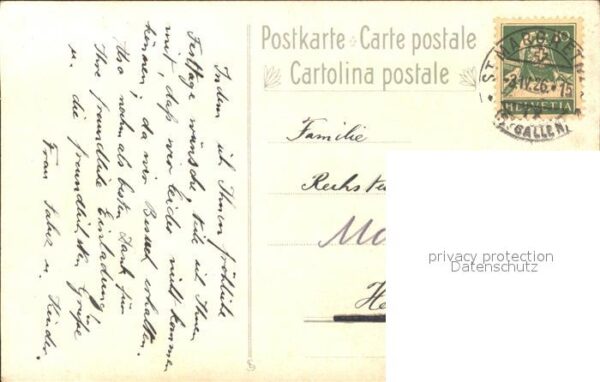 Postkarte Carte postale
Cartolina postale
10
ST. MARGRETHEN
2.IV.26. 15
(ST. GALLEN)
HELVETIA
Familie
He
privacy protection
Datenschutz
Indem ich Ihnen fröhliche
Festtage wünsche teile ich Ihnen
mit, daß wir leider nicht kommen
können, da wir Besuch erhalten.
Also nochmals besten Dank für
Ihre freundliche Einladung
u. die freundlichsten Grüße
Frau u. Kinder.